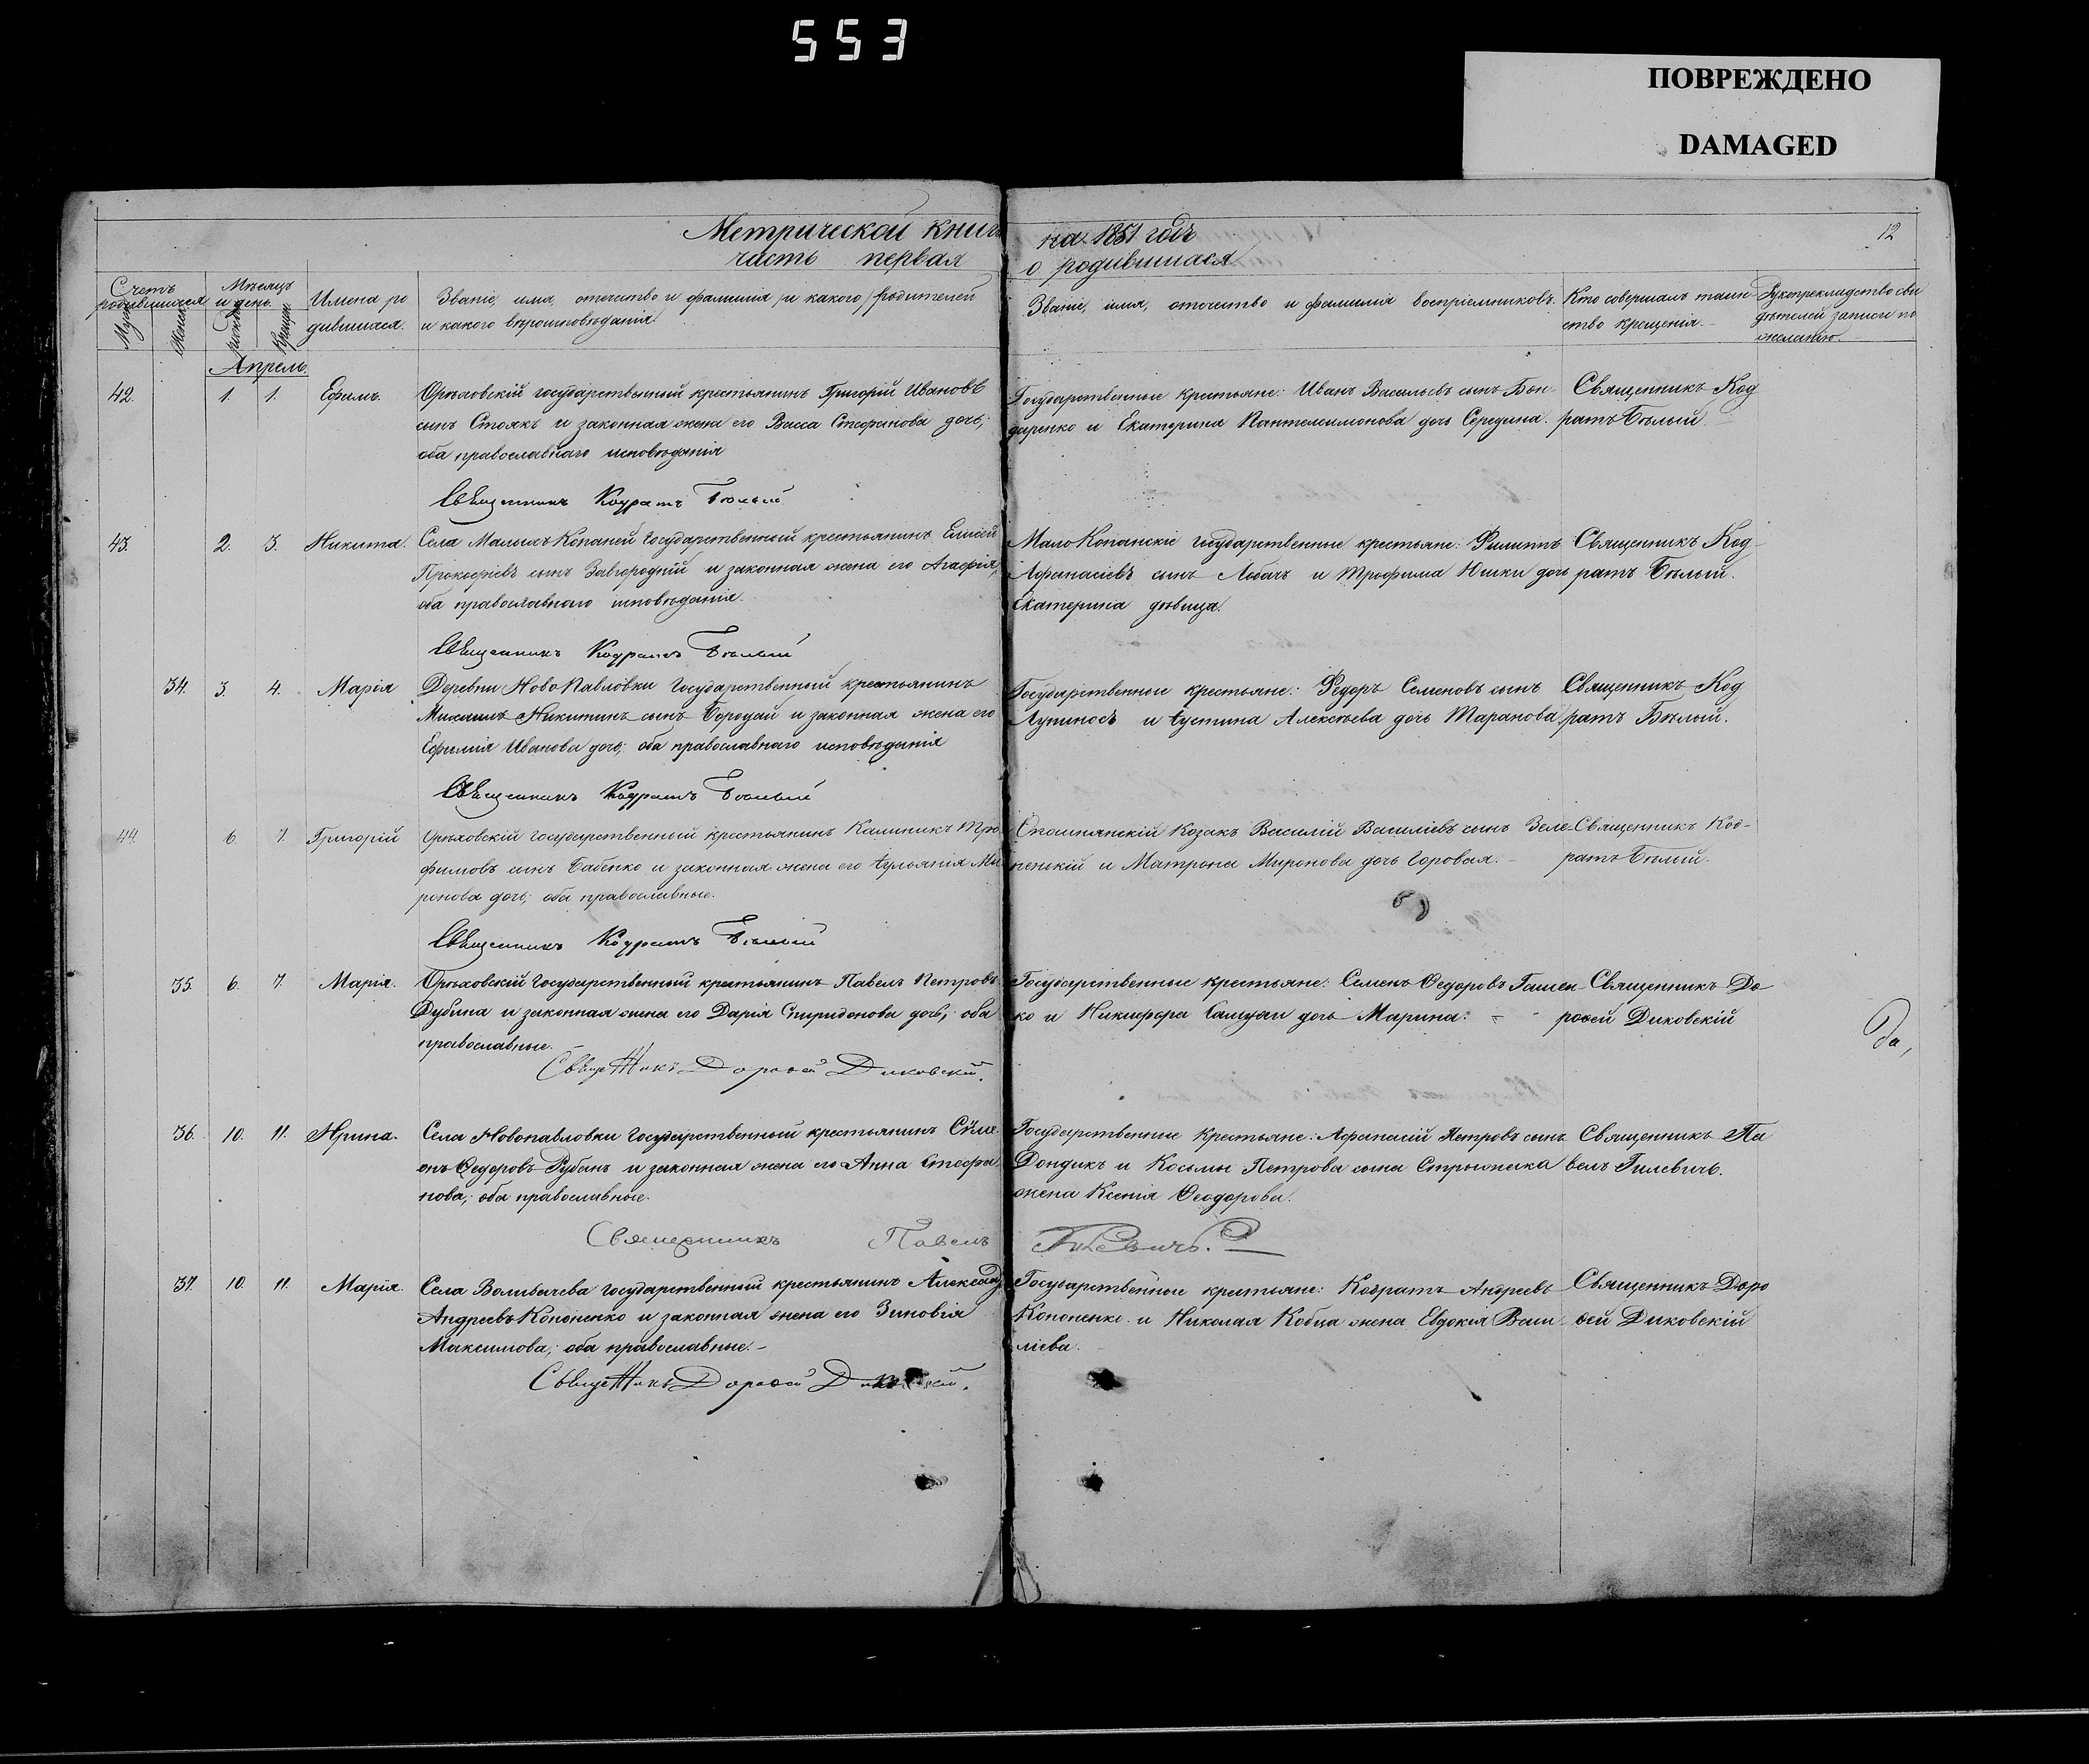 553
ПОВРЕЖДЕНО
DAMAGED
Метрической книги на 1851 годъ
12
часть первая о родившихся
Счетъ родившихся
Муж. Женск.
Мѣсяцъ и день.
рожд. крещ.
Имена ро
дившихся.
Званіе, имя, отечество и фамилія и какого родителей
и какого вѣроисповѣданія.
Званіе, имя, отечество и фамилія воспріемниковъ.
Кто совершалъ таин
ство крещенія.
Рукоприкладство сви
дѣтелей записи по
желанію.
Апрель
42. 1. 1. Ефимъ. Орѣховскій государственный крестьянинъ Григорій Ивановъ
сынъ Стоякъ и законная жена его Васса Стефанова дочь;
оба православнаго исповѣданія
Государственные крестьяне: Иванъ Васильевъ сынъ Бон-
даренко и Екатерина Пантелеимонова дочь Середина.
Священникъ Код
ратъ Бѣлый
Священникъ Кодратъ Бѣлый
43. 2. 3. Никита. Села Малыхъ Копаней государственный крестьянинъ Елисей
Прокофіевъ сынъ Завгородній и законная жена его Агафія,
оба православнаго исповѣданія.
МалоКопанскіе государственные крестьяне: Филиппъ
Афанасіевъ сынъ Лобачъ и Трофима дочь
Екатерина дѣвица.
Священникъ Код-
ратъ Бѣлый.
Священникъ Кодратъ Бѣлый
34. 3 4. Марія Деревни НовоПавловки государственный крестьянинъ
Михаилъ Никитинъ сынъ Бородай и законная жена его
Ефимія Иванова дочь; оба православнаго исповѣданія
Государственные крестьяне: Федоръ Семеновъ сынъ
Лупиносъ и Іустина Алексѣева дочь Таранова
Священникъ Код
ратъ Бѣлый.
Священникъ Кодратъ Бѣлый
44. 6. 7. Григорій Орѣховскій государственный крестьянинъ Калиникъ Тро
фимовъ сынъ Бабенко и законная жена его Іульянія Ми
ронова дочь; оба православные.
Козакъ Василій Василіевъ сынъ Зеле-
пенскій и Матрона Миронова дочь Горовая.
Священникъ Код-
ратъ Бѣлый.
Священникъ Кодратъ Бѣлый
35. 6. 7. Марія. Орѣховскій государственный крестьянинъ Павелъ Петровъ
Дубина и законная жена его Дарія Спиридонова дочь; оба
православные.
Государственные крестьяне: Семенъ Ѳедоровъ Гашен-
ко и Никифора дочь Марина.
Священникъ До
роѳей Диковскій
Да,
СвящеНникъ Дороѳей Диковскій.
36. 10. 11. Ирина. Села Новопавловки государственный крестьянинъ Симе
онъ Ѳедоровъ Рубанъ и законная жена его Анна Стефа
нова; оба православные.
Государственные крестьяне: Афанасій Петровъ сынъ
Дондикъ и Косьмы Петрова сына Стрижака
жена Ксенія Ѳеодорова.
Священникъ Па
велъ Гилевичъ.
Священникъ Павелъ Гилевичъ.
37. 10. 11. Марія. Села Волшачева государственный крестьянинъ Александ
Андреевъ Кононенко и законная жена его Зиновія
Максимова; оба православные.
Государственные крестьяне: Кодратъ Андреевъ
Кононенко и Николая Кобца жена Евдокія Васи-
ліева.
Священникъ Доро
ѳей Диковскій
СвящеНникъ Дороѳей Диковскій.